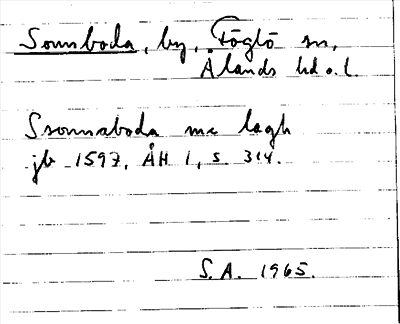 Sonnboda, by, Föglö sn,
Ålands hd o. l.
Ssonnaboda mc lagh
jb 1597, ÅH 1, s. 314.
S.A. 1965.